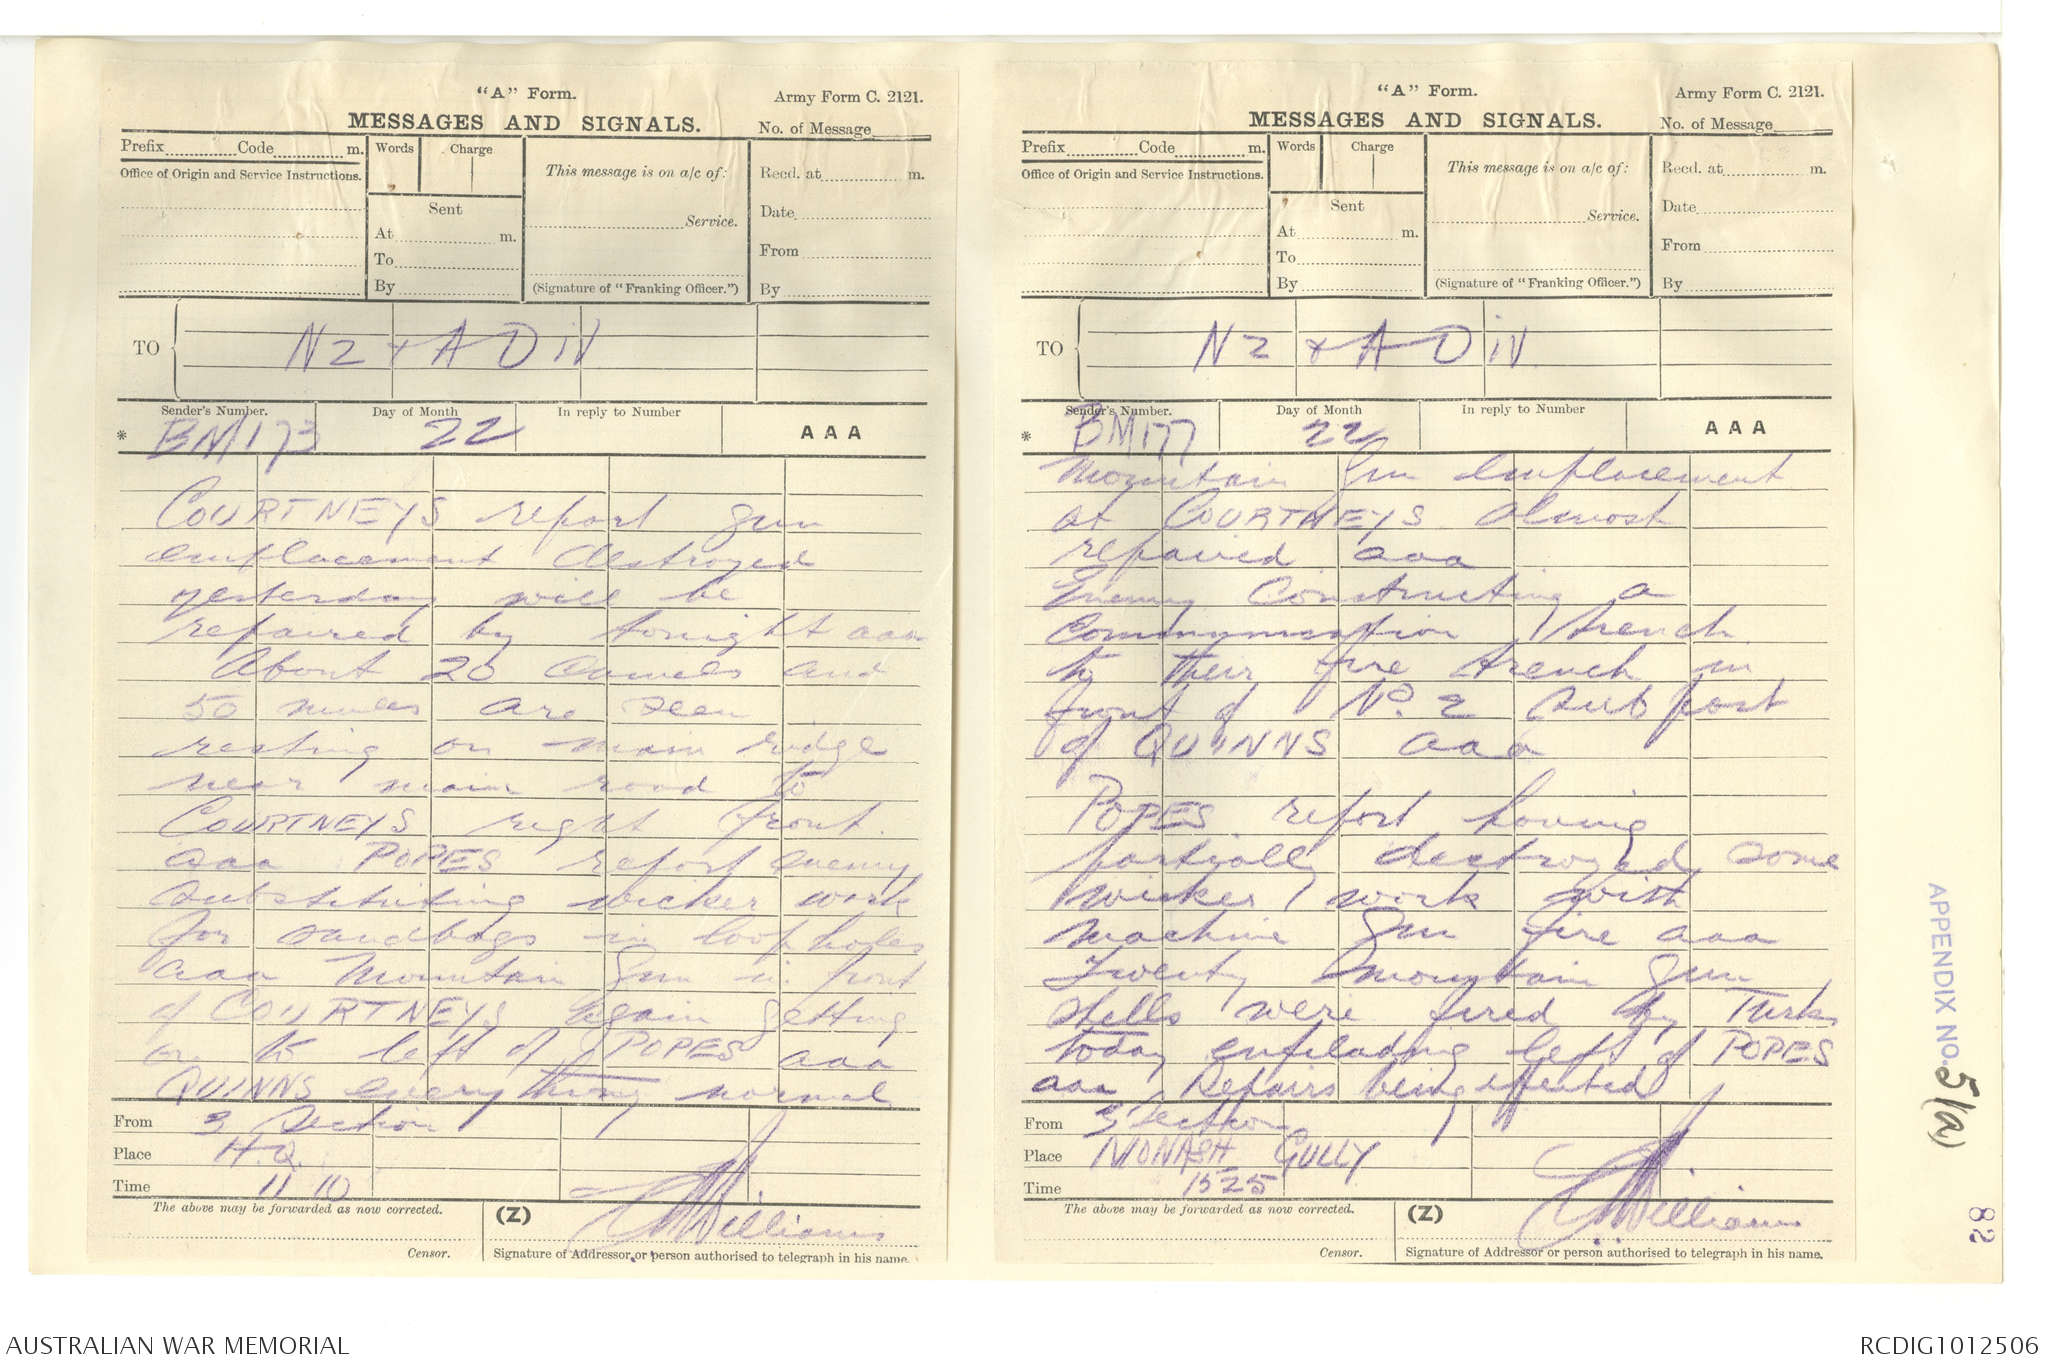 "A" Form.
Army Form C. 2121.
MESSAGES AND SIGNALS.
No. of Message
Prefix Code m.
Words Charge
This message is on a/c of:
Recd. at m.
Office of Origin and Service Instructions.
Sent
Service.
Date
At m.
From
To
By
(Signature of "Franking Officer.")
By
TO
NZ + A Div
Sender's Number.
Day of Month
In reply to Number
* BM173
22
AAA
COURTNEYS report gun
emplacement destroyed
yesterday will be
repaired by tonight aaa
About 20 camels and
50 mules are seen
resting on main ridge
near main road to
COURTNEYS right front.
aaa POPES report enemy
substituting wicker work
for sandbags in loopholes
aaa Mountain Gun in front
of COURTNEYS again getting
on to left of POPES aaa
QUINNS everything normal
From 3 Section
Place H.Q.
Time 11 10
The above may be forwarded as now corrected.
(Z)
Williams
Censor.
Signature of Addressor or person authorised to telegraph in his name.
"A" Form.
Army Form C. 2121.
MESSAGES AND SIGNALS.
No. of Message
Prefix Code m.
Words Charge
This message is on a/c of:
Recd. at m.
Office of Origin and Service Instructions.
Sent
Service.
Date
At m.
From
To
By
(Signature of "Franking Officer.")
By
TO
NZ + A Div
Sender's Number.
Day of Month
In reply to Number
* BM177
22
AAA
Mountain Gun emplacement
at COURTNEYS almost
repaired aaa
Enemy constructing a
communication trench
to their fire trench in
front of No. 2 sub post
of QUINNS aaa
POPES report having
partially destroyed some
wicker work with
machine gun fire aaa
Twenty mountain gun
shells were fired by Turks
today enfilading left of POPES
aaa Repairs being effected
From 3 Section
Place MONASH GULLY
Time 1525
The above may be forwarded as now corrected.
(Z)
Williams
Censor.
Signature of Addressor or person authorised to telegraph in his name.
APPENDIX NO. 5(a)
82
AUSTRALIAN WAR MEMORIAL
RCDIG1012506